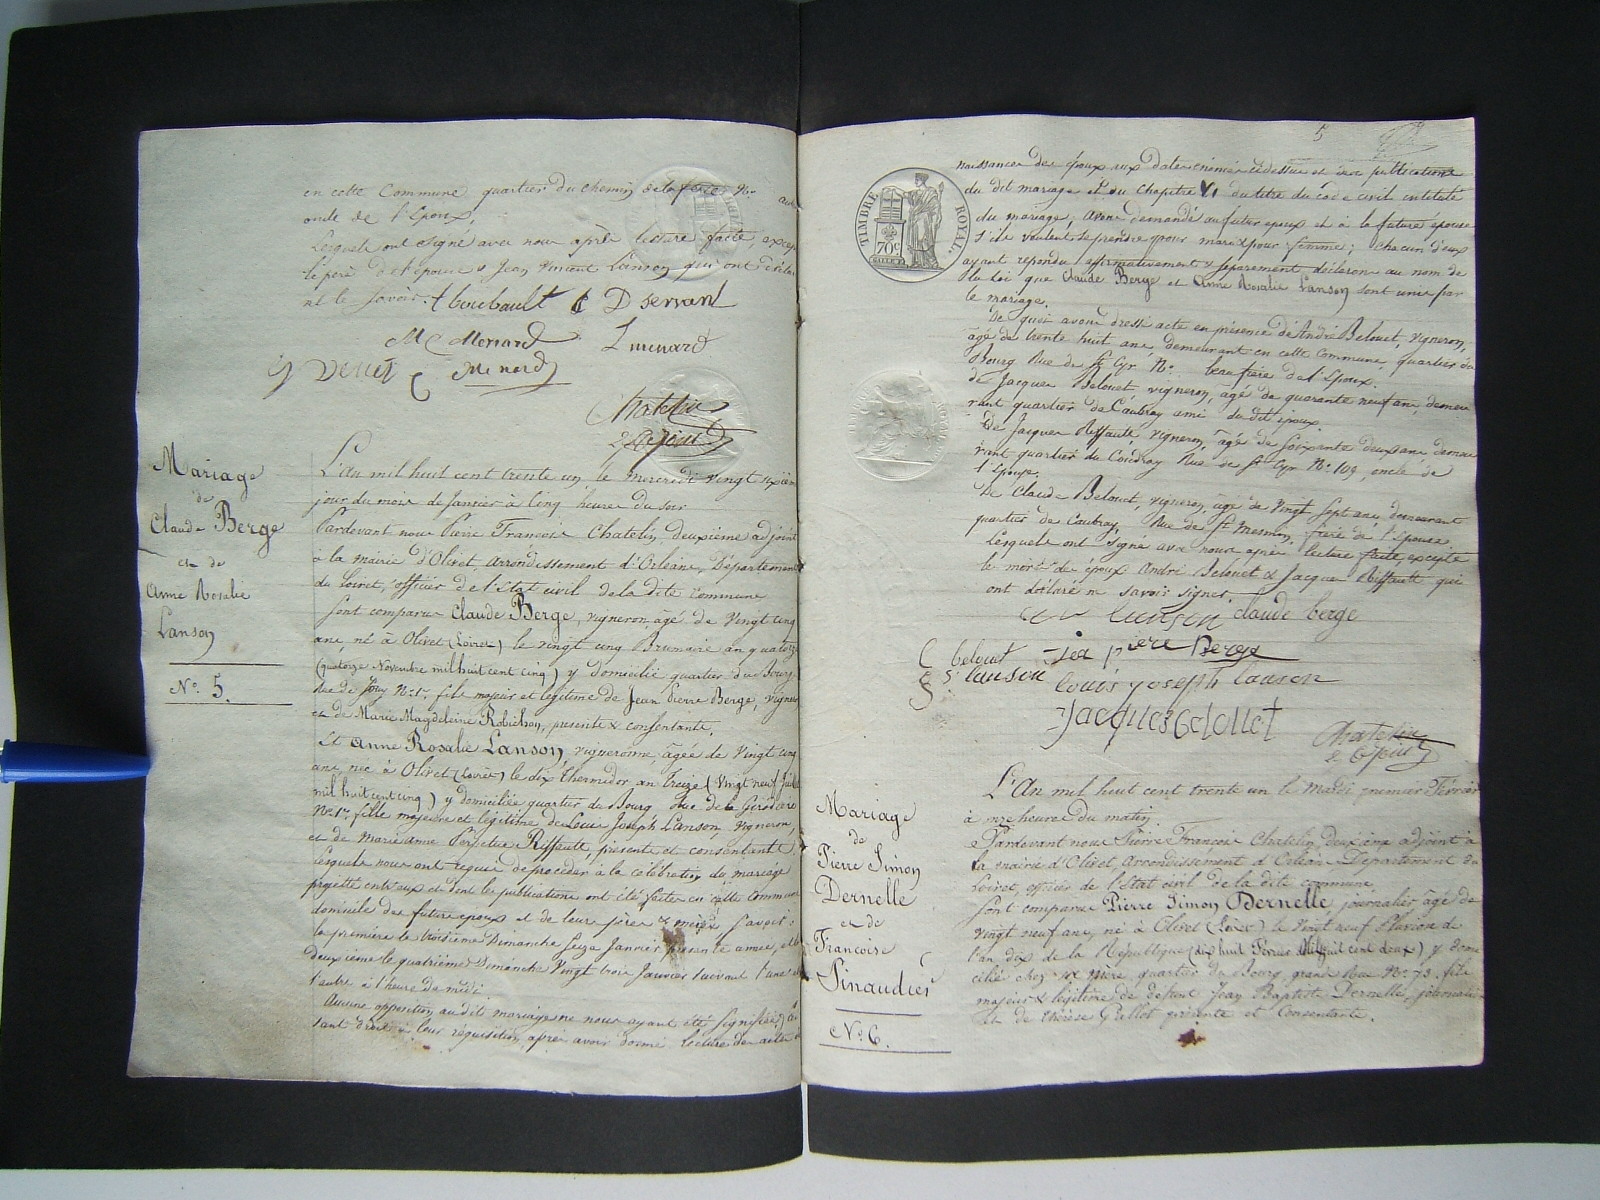 en cette Commune quartier du chemin de la
oncle de l'Epoux,
Lesquels ont signé avec nous après lecture faite, excepté
le père de l'épouse & Jean Vincent Lanson qui ont déclaré
ne le savoir.
Servant
Menard
Menard
Chatelin
2e adjoint
Mariage
de
Claude Berge
et de
Anne Rosalie
Lanson
No. 5.
L'An mil huit cent trente un le Mercredi vingt sixième
jour du mois de Janvier à Cinq heures du soir
Pardevant nous Pierre François Chatelin, deuxième adjoint
à la mairie d'Olivet, arrondissement d'Orléans, Département
du Loiret, officier de l'Etat civil de la dite Commune
sont comparus Claude Berge, vigneron, agé de Vingt cinq
ans, né à Olivet (Loiret) le vingt cinq Brumaire an quatorze
(quatorze Novembre mil huit cent cinq) y domicilié quartier du Bourg
Rue de No. 1er. fils majeur et legitime de Jean Pierre Berge, vigneron
et de Marie Magdeleine Robichon, présents & consentants.
Et Anne Rosalie Lanson, vigneronne, agée de Vingt cinq
ans, née à Olivet (Loiret) le dix thermidor an treize (Vingt neuf Juillet
mil huit cent cinq) y domiciliée quartier du Bourg Rue de la
No. 1er. fille majeure et légitime de Louis Joseph Lanson Vigneron,
et de Marie Anne Perpetue Riffault, présents et consentants.
Lesquels nous ont requis de procéder à la célébration du mariage
projetté entr'eux et dont les publications ont été faites en cette Commune
domicile des futurs époux et de leurs pères & mères savoir:
la première le troisième Dimanche seize Janvier présente année, et la
deuxième le quatrième Dimanche Vingt trois Janvier suivant l'une et
l'autre à l'heure de midi.
Aucune opposition au dit mariage ne nous ayant été signifiée,
sant droit à leur réquisition, après avoir donné lecture des actes de
5
TIMBRE ROYAL
70c
naissance des époux aux dates énoncées ci dessus et des publications
du dit mariage et du chapitre VI du titre du code civil intitulé
du mariage; avons demandé au futur époux et à la future épouse
s'ils veulent se prendre pour mari & pour femme; chacun d'eux
ayant répondu affirmativement & séparément déclarons au nom de
la loi que Claude Berge et Anne Rosalie Lanson sont unis par
le mariage.
De quoi avons dressé acte en présence d'André Belouet, vigneron,
âgé de trente huit ans, demeurant en cette Commune, quartier du
Bourg Rue de St. Cyr No. beau frère de l'époux.
de Jacques Belouet, vigneron, âgé de quarante neuf ans, demeu-
rant quartier de Caubray ami du dit époux.
De Jacques Riffault, vigneron, âgé de soixante deux ans demeu-
rant quartier du Coudray Rue de St. Cyr No. 109, oncle de
l'épouse.
De Claude Belouet, vigneron, âgé de Vingt sept ans, demeurant
quartier de Caubray, Rue de St. Mesmin, frère de l'épouse,
Lesquels ont signé avec nous après lecture faite excepté
la mère de époux André Belouet & Jacques Riffault qui
ont déclaré ne savoir signer.
lanson claude berge
C belouet jea pierre Berge
lanson louis joseph lanson
Jacques belouet
Chatelin
2e adjoint
Mariage
de
Pierre Simon
Dernelle
et de
Françoise
Pinaudier
No. 6.
L'An mil huit cent trente un le Mardi premier Février
à onze heures du matin
Pardevant nous Pierre François Chatelin, deuxième adjoint à
la mairie d'Olivet, arrondissement d'Orléans Département du
Loiret, officier de l'Etat civil de la dite commune.
Sont comparus Pierre Simon Dernelle journalier âgé de
vingt neuf ans, né à Olivet (Loiret) le vingt neuf Pluviose de
l'an dix de la République (dix huit Février mil huit cent deux) y domi-
cilié chez sa mère, quartier du Bourg grande Rue No. 73. fils
majeur & légitime de défunt Jean Baptiste Dernelle, journalier
et de Thérèse Grellet présente et consentante.